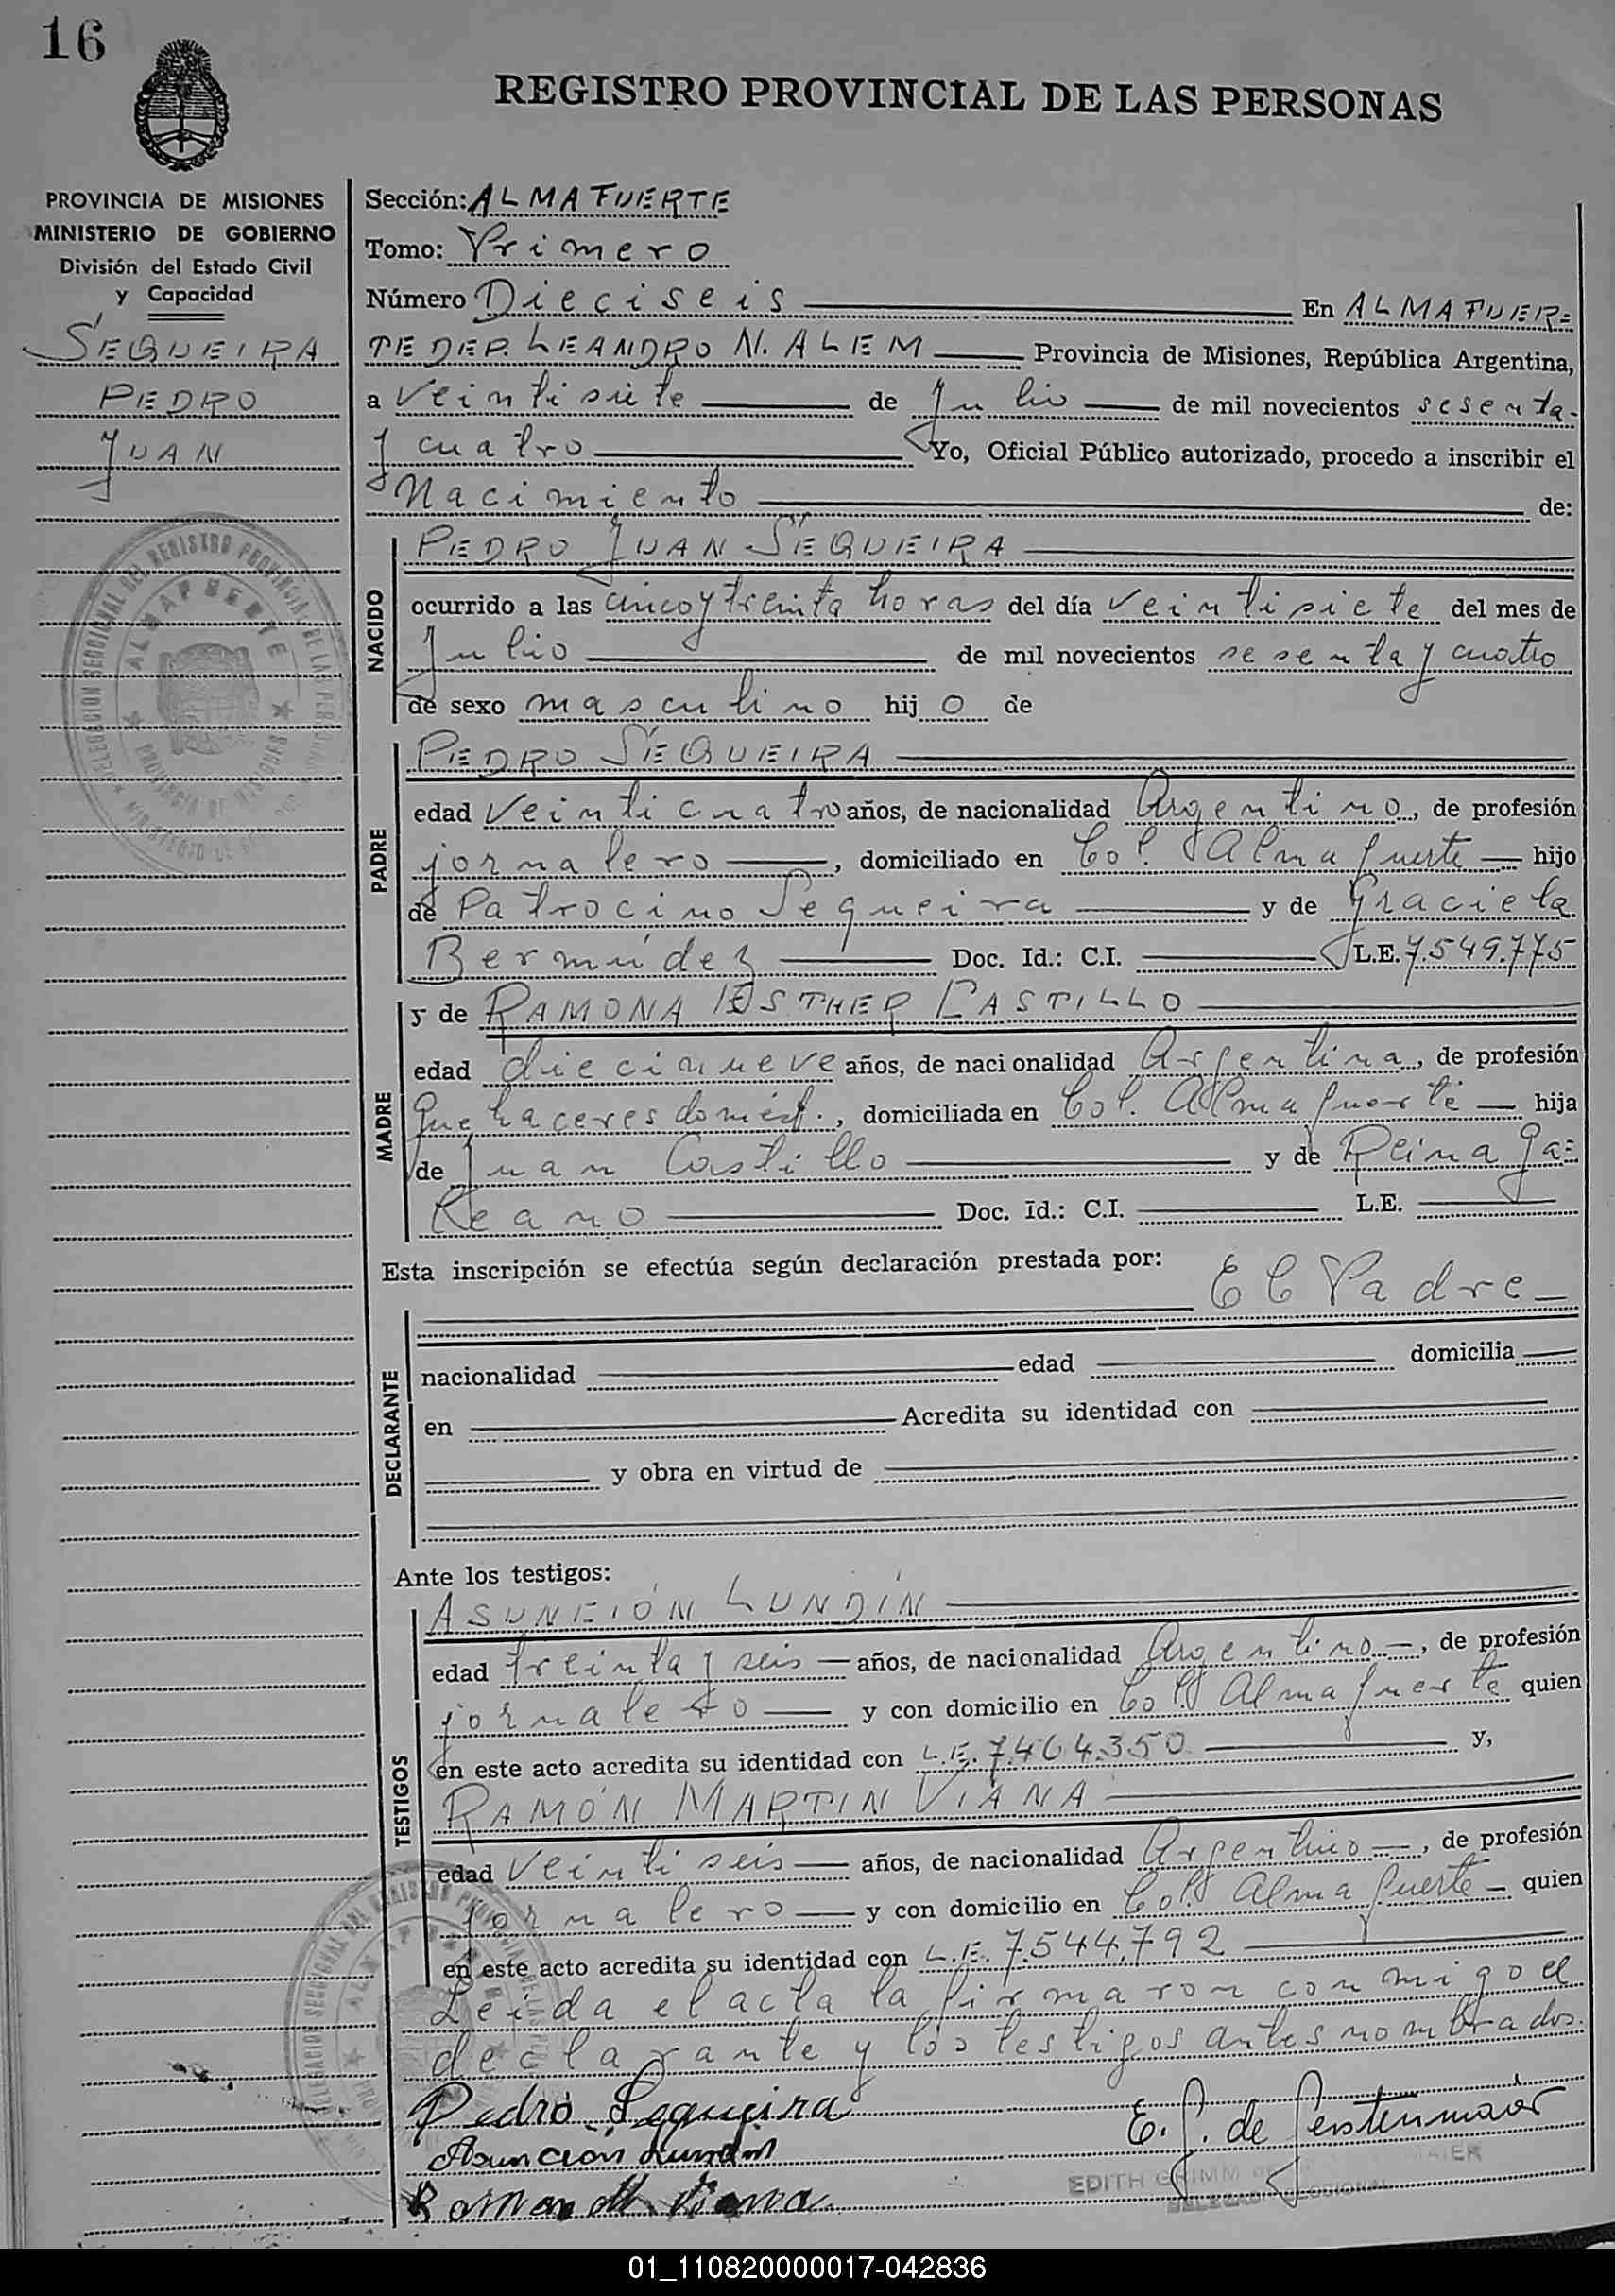 16
REGISTRO PROVINCIAL DE LAS PERSONAS
PROVINCIA DE MISIONES
MINISTERIO DE GOBIERNO
División del Estado Civil
y Capacidad
SEQUEIRA
PEDRO
JUAN
Sección: ALMAFUERTE
Tomo: Primero
Número Dieciseis En ALMAFUER=
TE DEP. LEANDRO N. ALEM Provincia de Misiones, República Argentina,
a veintisiete de Julio de mil novecientos sesenta-
y cuatro Yo, Oficial Público autorizado, procedo a inscribir el
Nacimiento de:
NACIDO
PEDRO JUAN SEQUEIRA
ocurrido a las cinco y treinta horas del día veintisiete del mes de
Julio de mil novecientos sesenta y cuatro
de sexo masculino hijo de
PADRE
PEDRO SEQUEIRA
edad veinticuatro años, de nacionalidad Argentino, de profesión
jornalero, domiciliado en Col. Almafuerte hijo
de Patrocino Sequeira y de Graciela
Bermúdez Doc. Id.: C.I. L.E. 7.549.775
MADRE
y de RAMONA ESTHER CASTILLO
edad diecinueve años, de nacionalidad Argentina, de profesión
Quehaceres domést., domiciliada en Col. Almafuerte hija
de Juan Castillo y de Reina Ga=
Doc. Id.: C.I. L.E.
Esta inscripción se efectúa según declaración prestada por: El Padre
DECLARANTE
nacionalidad edad domicilia
en Acredita su identidad con
y obra en virtud de
Ante los testigos:
TESTIGOS
ASUNCIÓN LUNDÍN
edad treinta y seis años, de nacionalidad Argentino, de profesión
jornalero y con domicilio en Col. Almafuerte quien
en este acto acredita su identidad con L.E. 7.464.350 y,
RAMÓN MARTIN VIANA
edad veintiseis años, de nacionalidad Argentino, de profesión
jornalero y con domicilio en Col. Almafuerte quien
en este acto acredita su identidad con L.E. 7.544.792
Leida el acta la firmaron conmigo el
declarante y los testigos antes nombrados.
Pedro Sequeira
E. G. de Gerstenmaier
Asunción Lundin
EDITH GRIMM
Ramon M. Viana
01_110820000017-042836